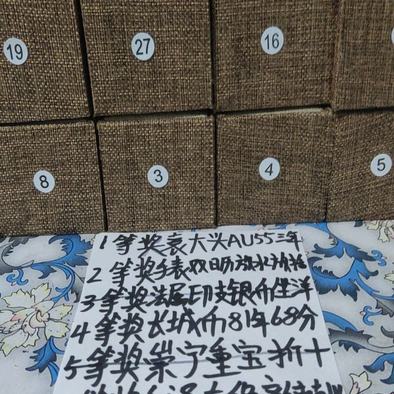 19
27
16
8
3
4
5
1等奖袁大头AU55三年
2等奖手表双日历
3等奖法属印支银币坐洋
4等奖长城币81年68分
5等奖崇宁重宝折十